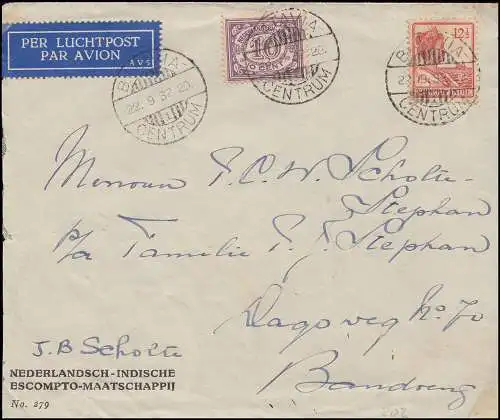 PER LUCHTPOST
PAR AVION
AVS
BATAVIA-
22. 9 32.20
CENTRUM
10
CENT
BATAVIA-
CENTRUM
12½
BATAVIA-
CENTRUM
Mevrouw F. C. W. Scholte-
Stephan
p/a Familie F. J. Stephan
Dagoweg No. 70
Bandoeng
J. B Scholte
NEDERLANDSCH-INDISCHE
ESCOMPTO-MAATSCHAPPIJ
No. 279